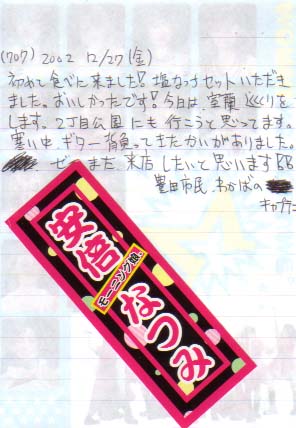 (707) 2002 12/27(金)
初めて食べに来ました!塩なっちセットいただき
ました。おいしかったです!今日は、室蘭めぐりを
します。2丁目公園にも行こうと思ってます。
寒い中、ギター背負ってきたかいがありました。
ぜひまた来店したいと思います
豊田市民 わかばの
キャプテン
安倍
モーニング娘。
なつみ